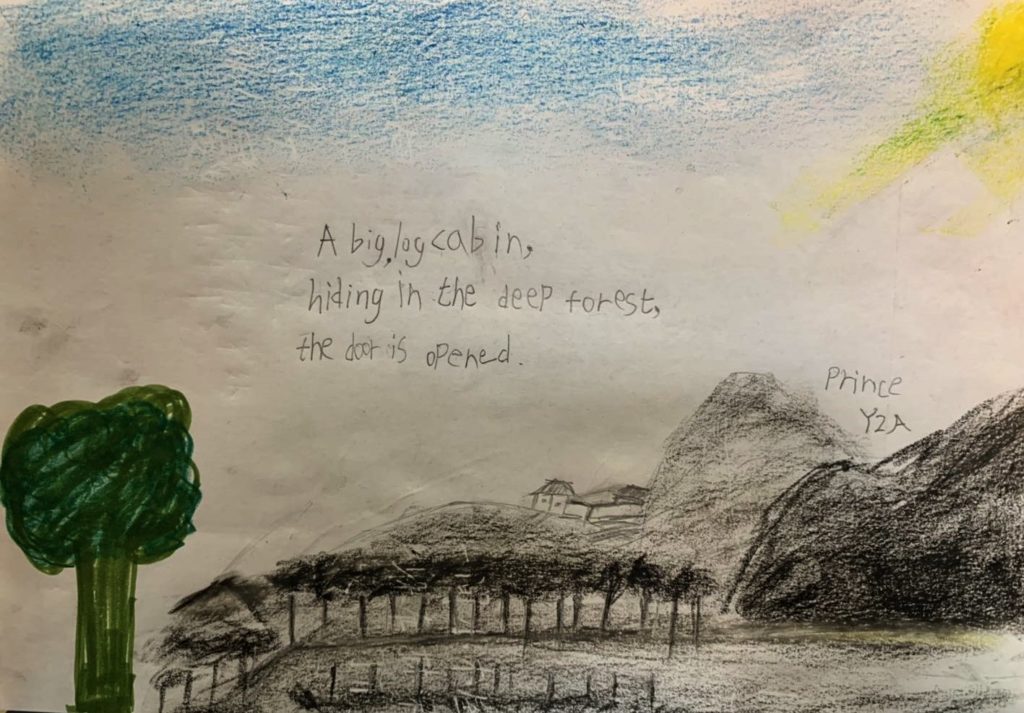 A big, log cabin,
hiding in the deep forest,
the door is opened.
Prince
Y2A